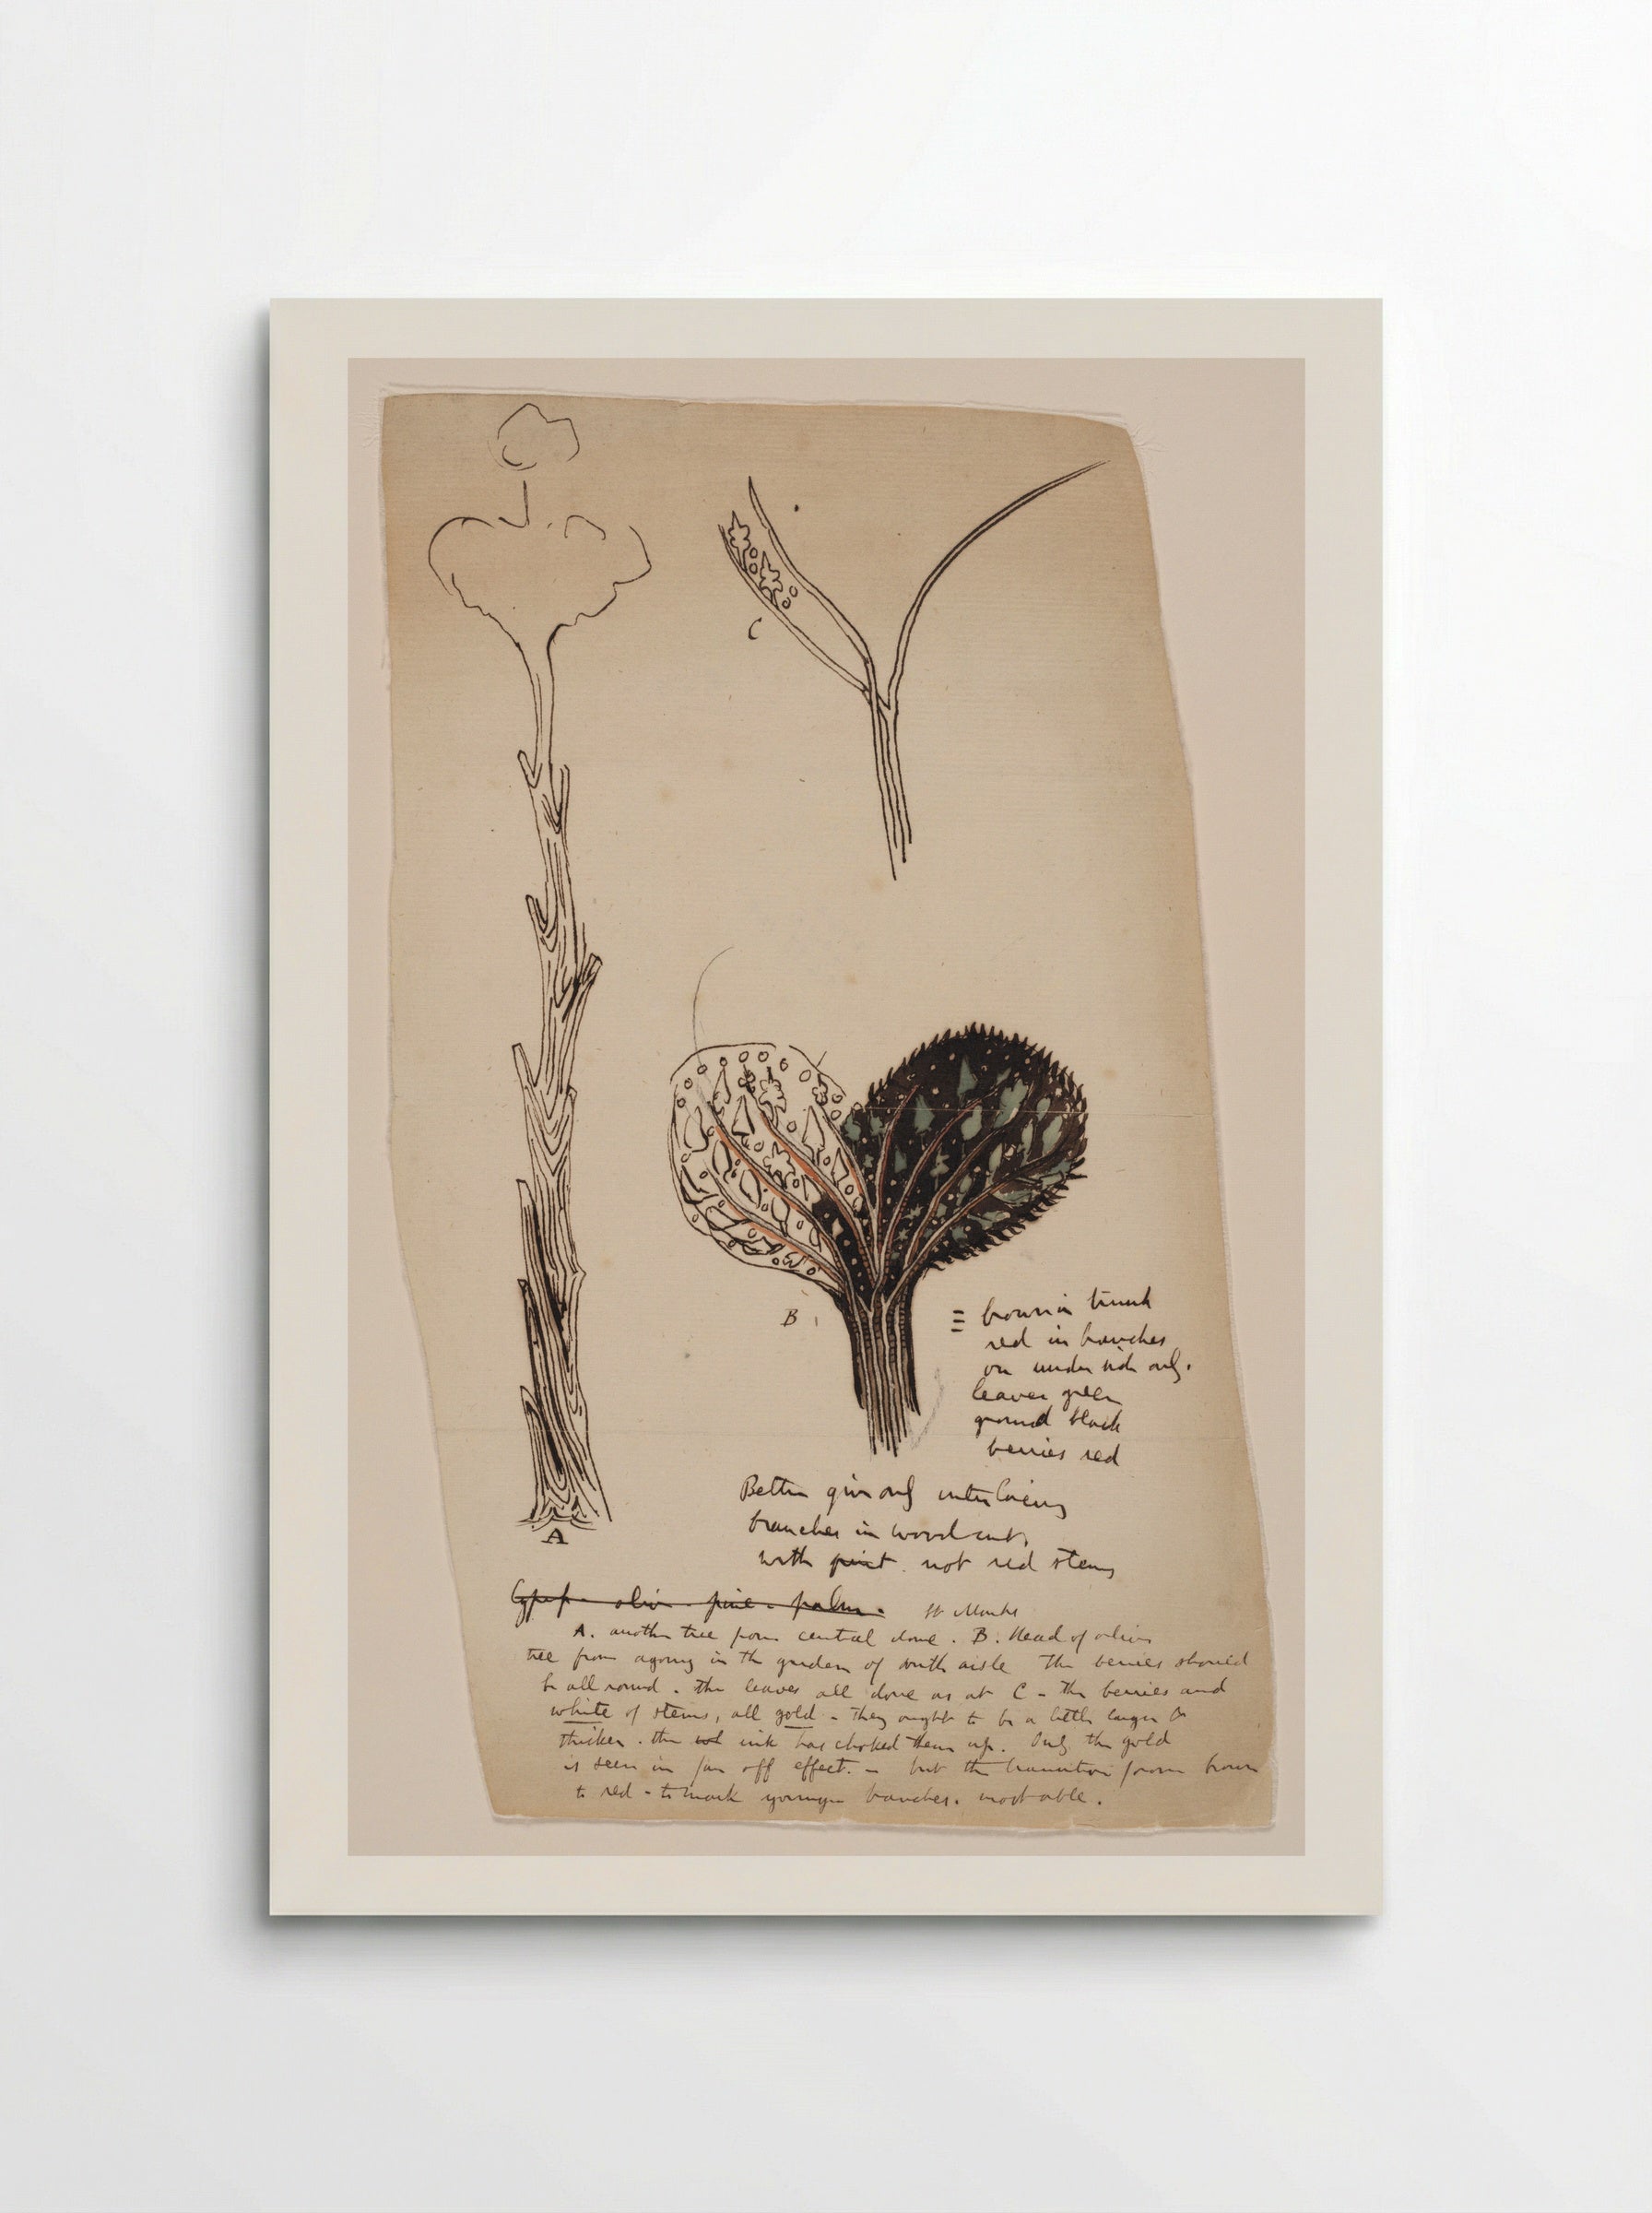 C
B
= brown in trunk
red in branches
on under side only.
leaves green
ground black
berries red
Better give only interlacing
branches in woodcut,
with print. not red stems
A
olive - pine - palm. St Marks
A. another tree from central dome. B. Head of olive
tree from agony in the garden of south aisle The berries should
be all round. The leaves all done as at C - The berries and
white of stems, all gold - They ought to be a little larger &
thicker. the red ink has choked them up. Only the gold
is seen in far off effect. - but the transition from brown
to red - to mark younger branches. notable.